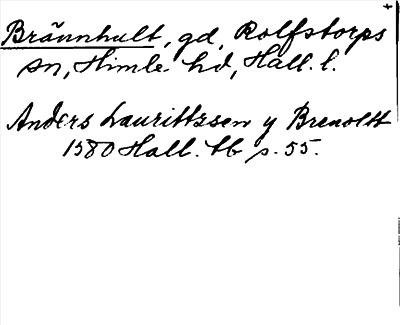 Brännhult, gd, Rolfstorps
sn, Himle hd, Hall. l.
Anders Laurittzsen y Brenoltt
1580 Hall. tb p. 55.